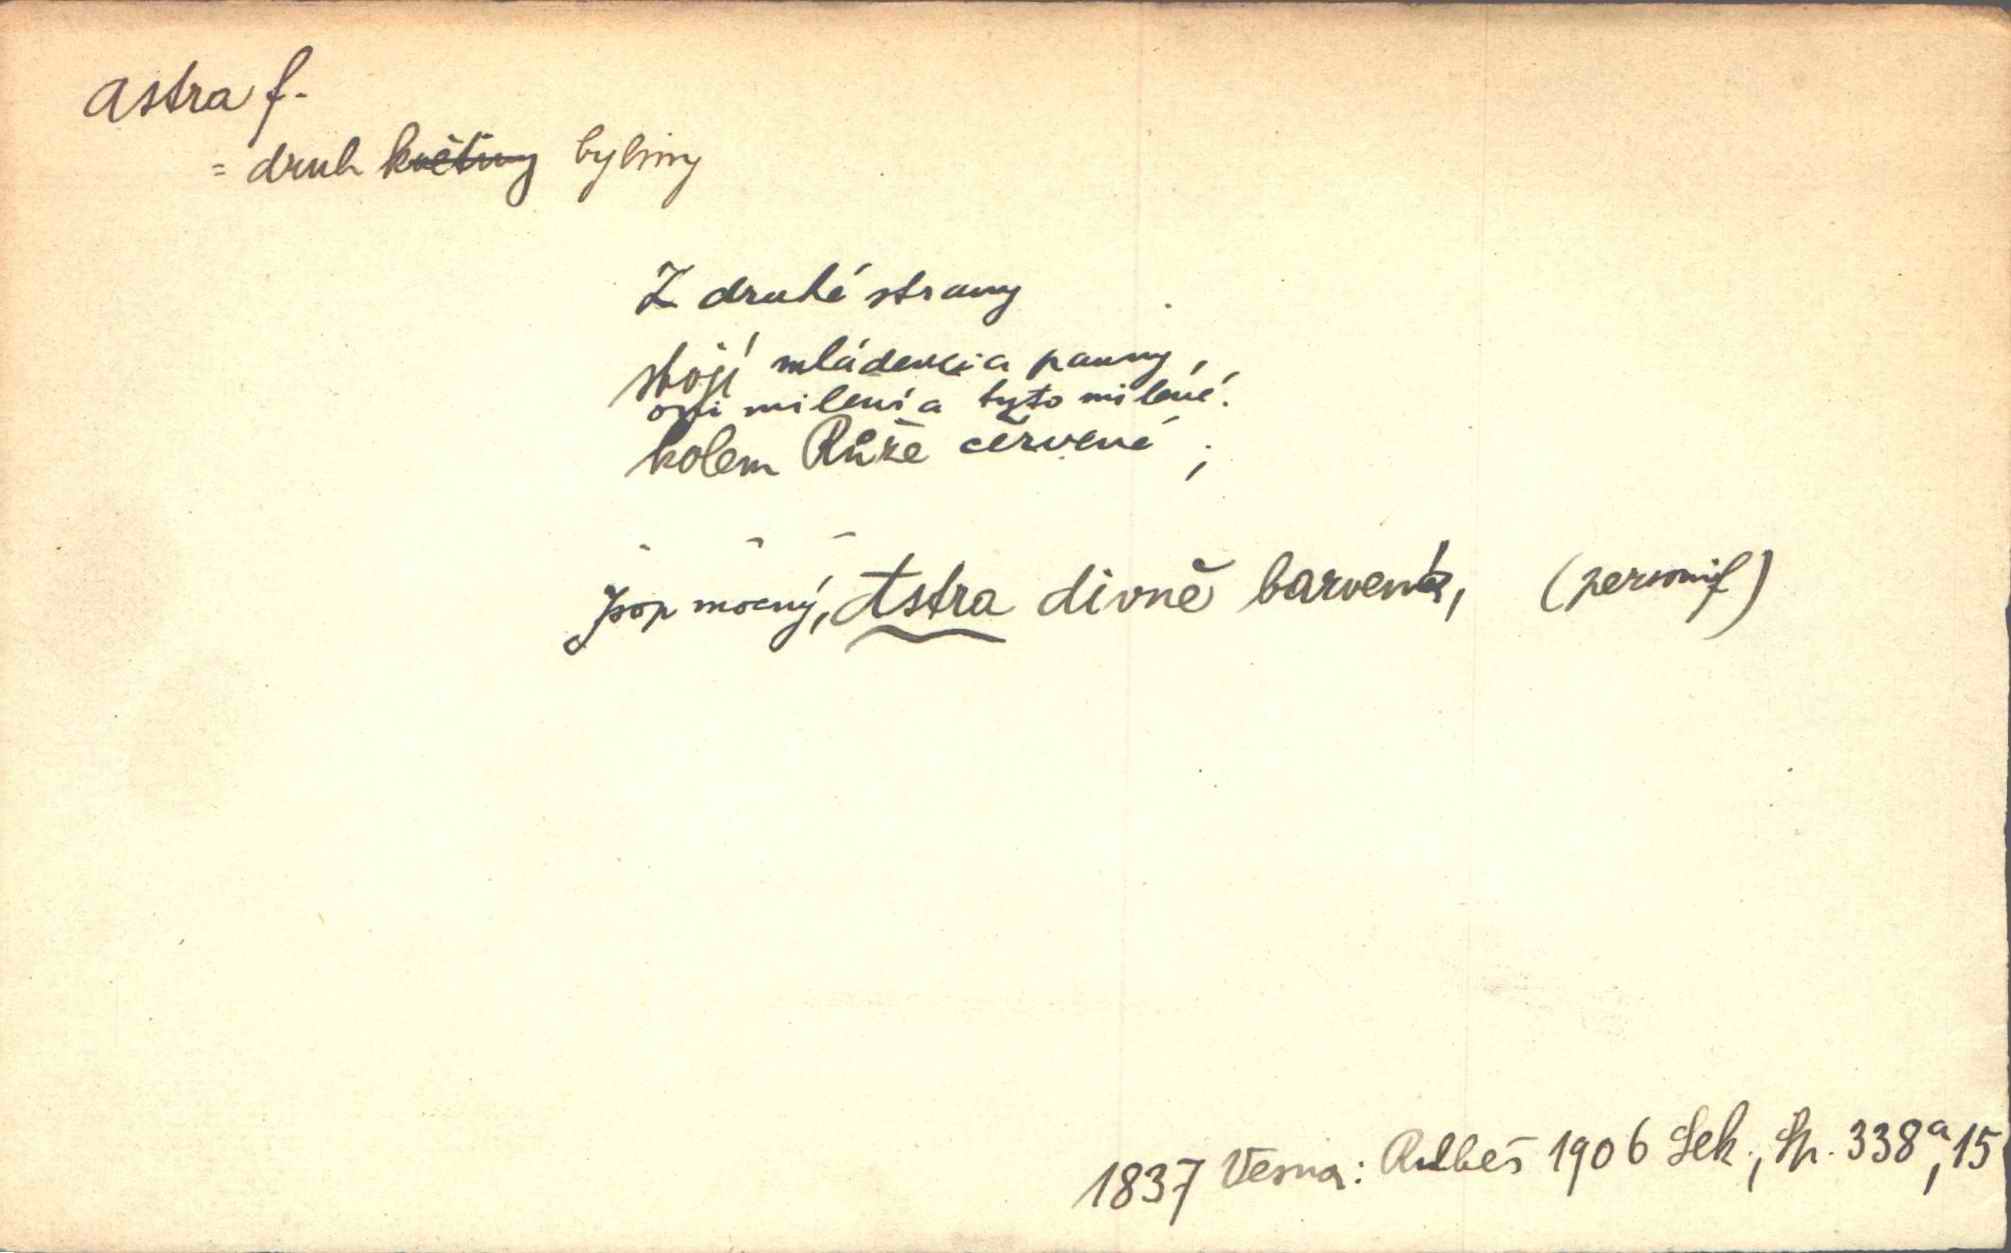 astra f.
= druh květiny byliny
Z druhé strany
stojí mládenci a panny,
oni milení a tyto milené.
kolem Růže červené ;
Jsop mocný, Astra divně barvená, (personif)
1837 Vesna: Rubeš 1906 Sek., Sp. 338a,15